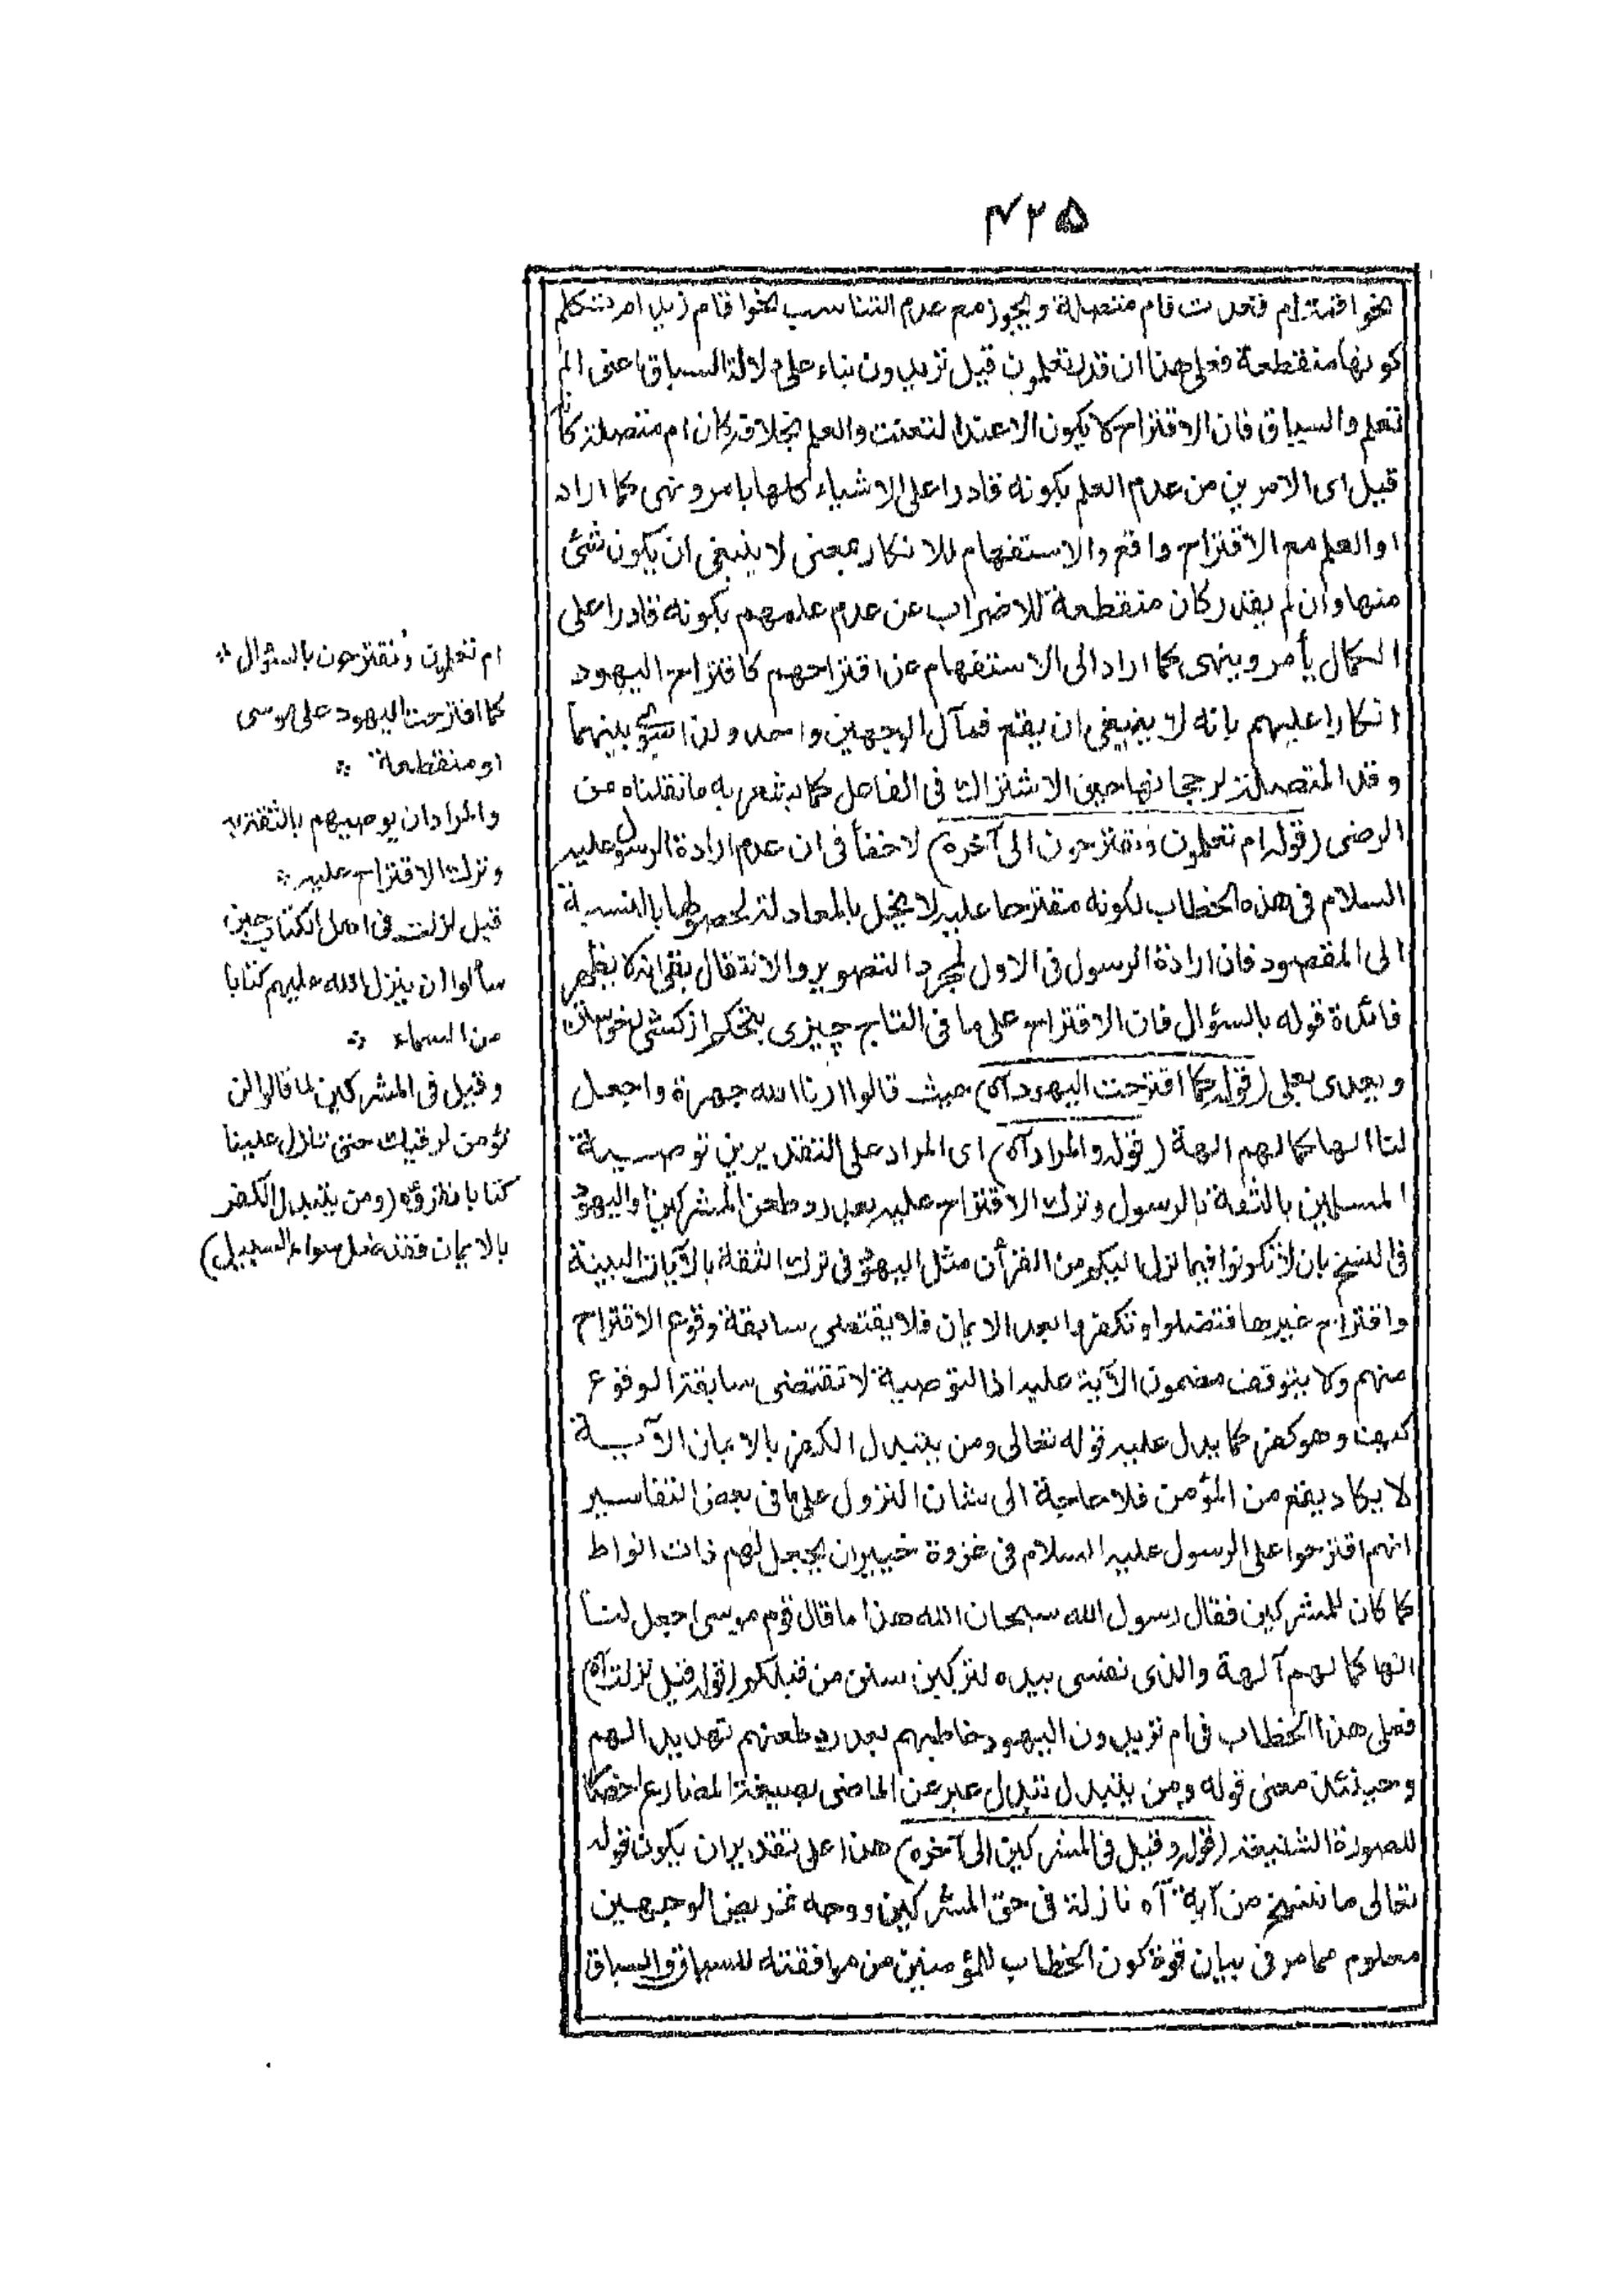 ۴۲۵
نحو اقمت ام قعدت فام متصلة ويجوز مع عدم التناسب نحو اقام زيد ام تتكلم
كونها منقطعة فعلى هذا ان قدر تعلمون قبل تريدون بناء على دلالة السباق اعنى الم
تعلم والسياق فان الاقتراح لا يكون الا عند التعنت والعلم بخلافه كان ام متصلة كأنه
قيل اى الامرين من عدم العلم بكونه قادرا على الاشياء كلها يامر وينهى كما اراد
او العلم مع الاقتراح واقع والاستفهام للانكار بمعنى لا ينبغى ان يكون شئ
منها وان لم يقدر كان منقطعة للاضراب عن عدم علمهم بكونه قادرا على
الكمال يأمر وينهى كما اراد الى الاستفهام عن اقتراحهم كاقتراح اليهود
انكارا عليهم بانه لا ينبغى ان يقع فمآل الوجهين واحد ولذا سوّى بينهما
وقدم المتصلة لرجحانها حين الاشتراك فى الفاعل كما يشعر به ما نقلناه من
الرضى (قوله ام تعلمون وتقترحون الى آخره) لا خفأ فى ان عدم ارادة الرسول عليه
السلام فى هذه الخطاب لكونه مقترحا عليه لا يخل بالمعادلة لحصولها بالنسبة
الى المقصود فان ارادة الرسول فى الاول لمجرد التصوير والانتقال بقى انه لا يظهر
فائدة قوله بالسؤال فان الاقتراح على ما فى التاج چيزى بتحكم از كسى خواستن
ويعدى بعلى (قوله كما اقترحت اليهود آه) حيث قالوا ارنا الله جهرة واجعل
لنا الها كما لهم الهة (قوله والمراد آه) اى المراد على التقديرين توصية
المسلمين بالثقة بالرسول وترك الاقتراح عليه بعد رد طعن المشركين واليهود
فى النسخ بان لا تكونوا فيما نزل اليكم من القرأن مثل اليهود فى ترك الثقة بالآيات البينة
واقتراح غيرها فتضلوا وتكفروا بعد الايمان فلا يقتضى سابقة وقوع الاقتراح
منهم ولا يتوقف مضمون الآية عليه اذ التوصية لا تقتضى سابقة الوقوع
كيف وهو كفر كما يدل عليه قوله تعالى ومن يتبدل الكفر بالايمان الآيــة
لا يكاد يقع من المؤمن فلا حاجة الى شان النزول على ما فى بعض التفاسير
انهم اقترحوا على الرسول عليه السلام فى غزوة خيبر ان يجعل لهم ذات انواط
كما كان للمشركين فقال رسول الله سبحان الله هذا ما قال قوم موسى اجعل لنا
الها كما لهم آلهة والذى نفسى بيده لتركبن سنن من قبلكم (قوله قيل نزلت آه)
فعلى هذا الخطاب فى ام تريدون اليهود خاطبهم بعد رد طعنهم تهديدا لهم
وحينئذ معنى قوله ومن يتبدل تبدل عبر عن الماضى بصيغة المضارع احضارا
للصورة الشنيعة (قوله وقيل فى المشركين الى آخره) هذا على تقدير ان يكون قوله
تعالى ما ننسخ من آية آه نازلة فى حق المشركين ووجه تمريض الوجهين
معلوم مما مر فى بيان قوة كون الخطاب للمؤمنين من موافقته للسباق والسياق
ام تعلمون وتقترحون بالسؤال
كما اقترحت اليهود على موسى
او منقطعة
والمراد ان يوصيهم بالثقة به
وترك الاقتراح عليه
قيل نزلت فى اهل الكتاب حين
سألوا ان ينزل الله عليهم كتابا
من السماء
وقيل فى المشركين لما قالوا لن
نؤمن لرقيك حتى تنزل علينا
كتابا نقرؤه (ومن يتبدل الكفر
بالايمان فقد ضل سواء السبيل)